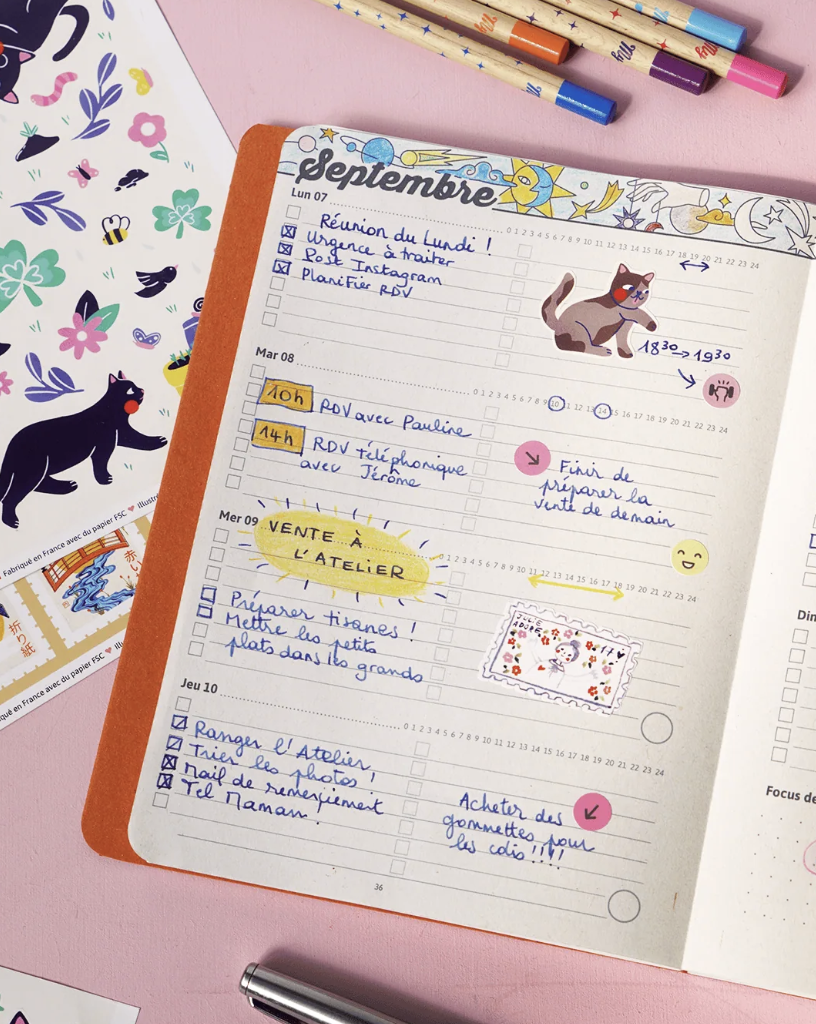 Septembre
Lun 07
0 1 2 3 4 5 6 7 8 9 10 11 12 13 14 15 16 17 18 19 20 21 22 23 24
Réunion du Lundi !
Urgence à traiter
Post Instagram
Planifier RDV
18³⁰ → 19³⁰
Mar 08
0 1 2 3 4 5 6 7 8 9 10 11 12 13 14 15 16 17 18 19 20 21 22 23 24
10h
RDV avec Pauline
14h
RDV Téléphonique
avec Jérôme
Finir de
préparer la
vente de demain
Mer 09
VENTE À
L'ATELIER
0 1 2 3 4 5 6 7 8 9 10 11 12 13 14 15 16 17 18 19 20 21 22 23 24
Préparer tisanes !
Mettre les petits
plats dans les grands
JULIE
ADORE
17
Jeu 10
0 1 2 3 4 5 6 7 8 9 10 11 12 13 14 15 16 17 18 19 20 21 22 23 24
Ranger l'Atelier
Trier les photos !
Mail de remerciement
Tel Maman !
Acheter des
gommettes pour
les colis !!!!
36
Din
Focus de
Fabriqué en France avec du papier FSC ♥ Illustré
赤い
折り紙
qué en France avec du papier FSC ♥ Illus